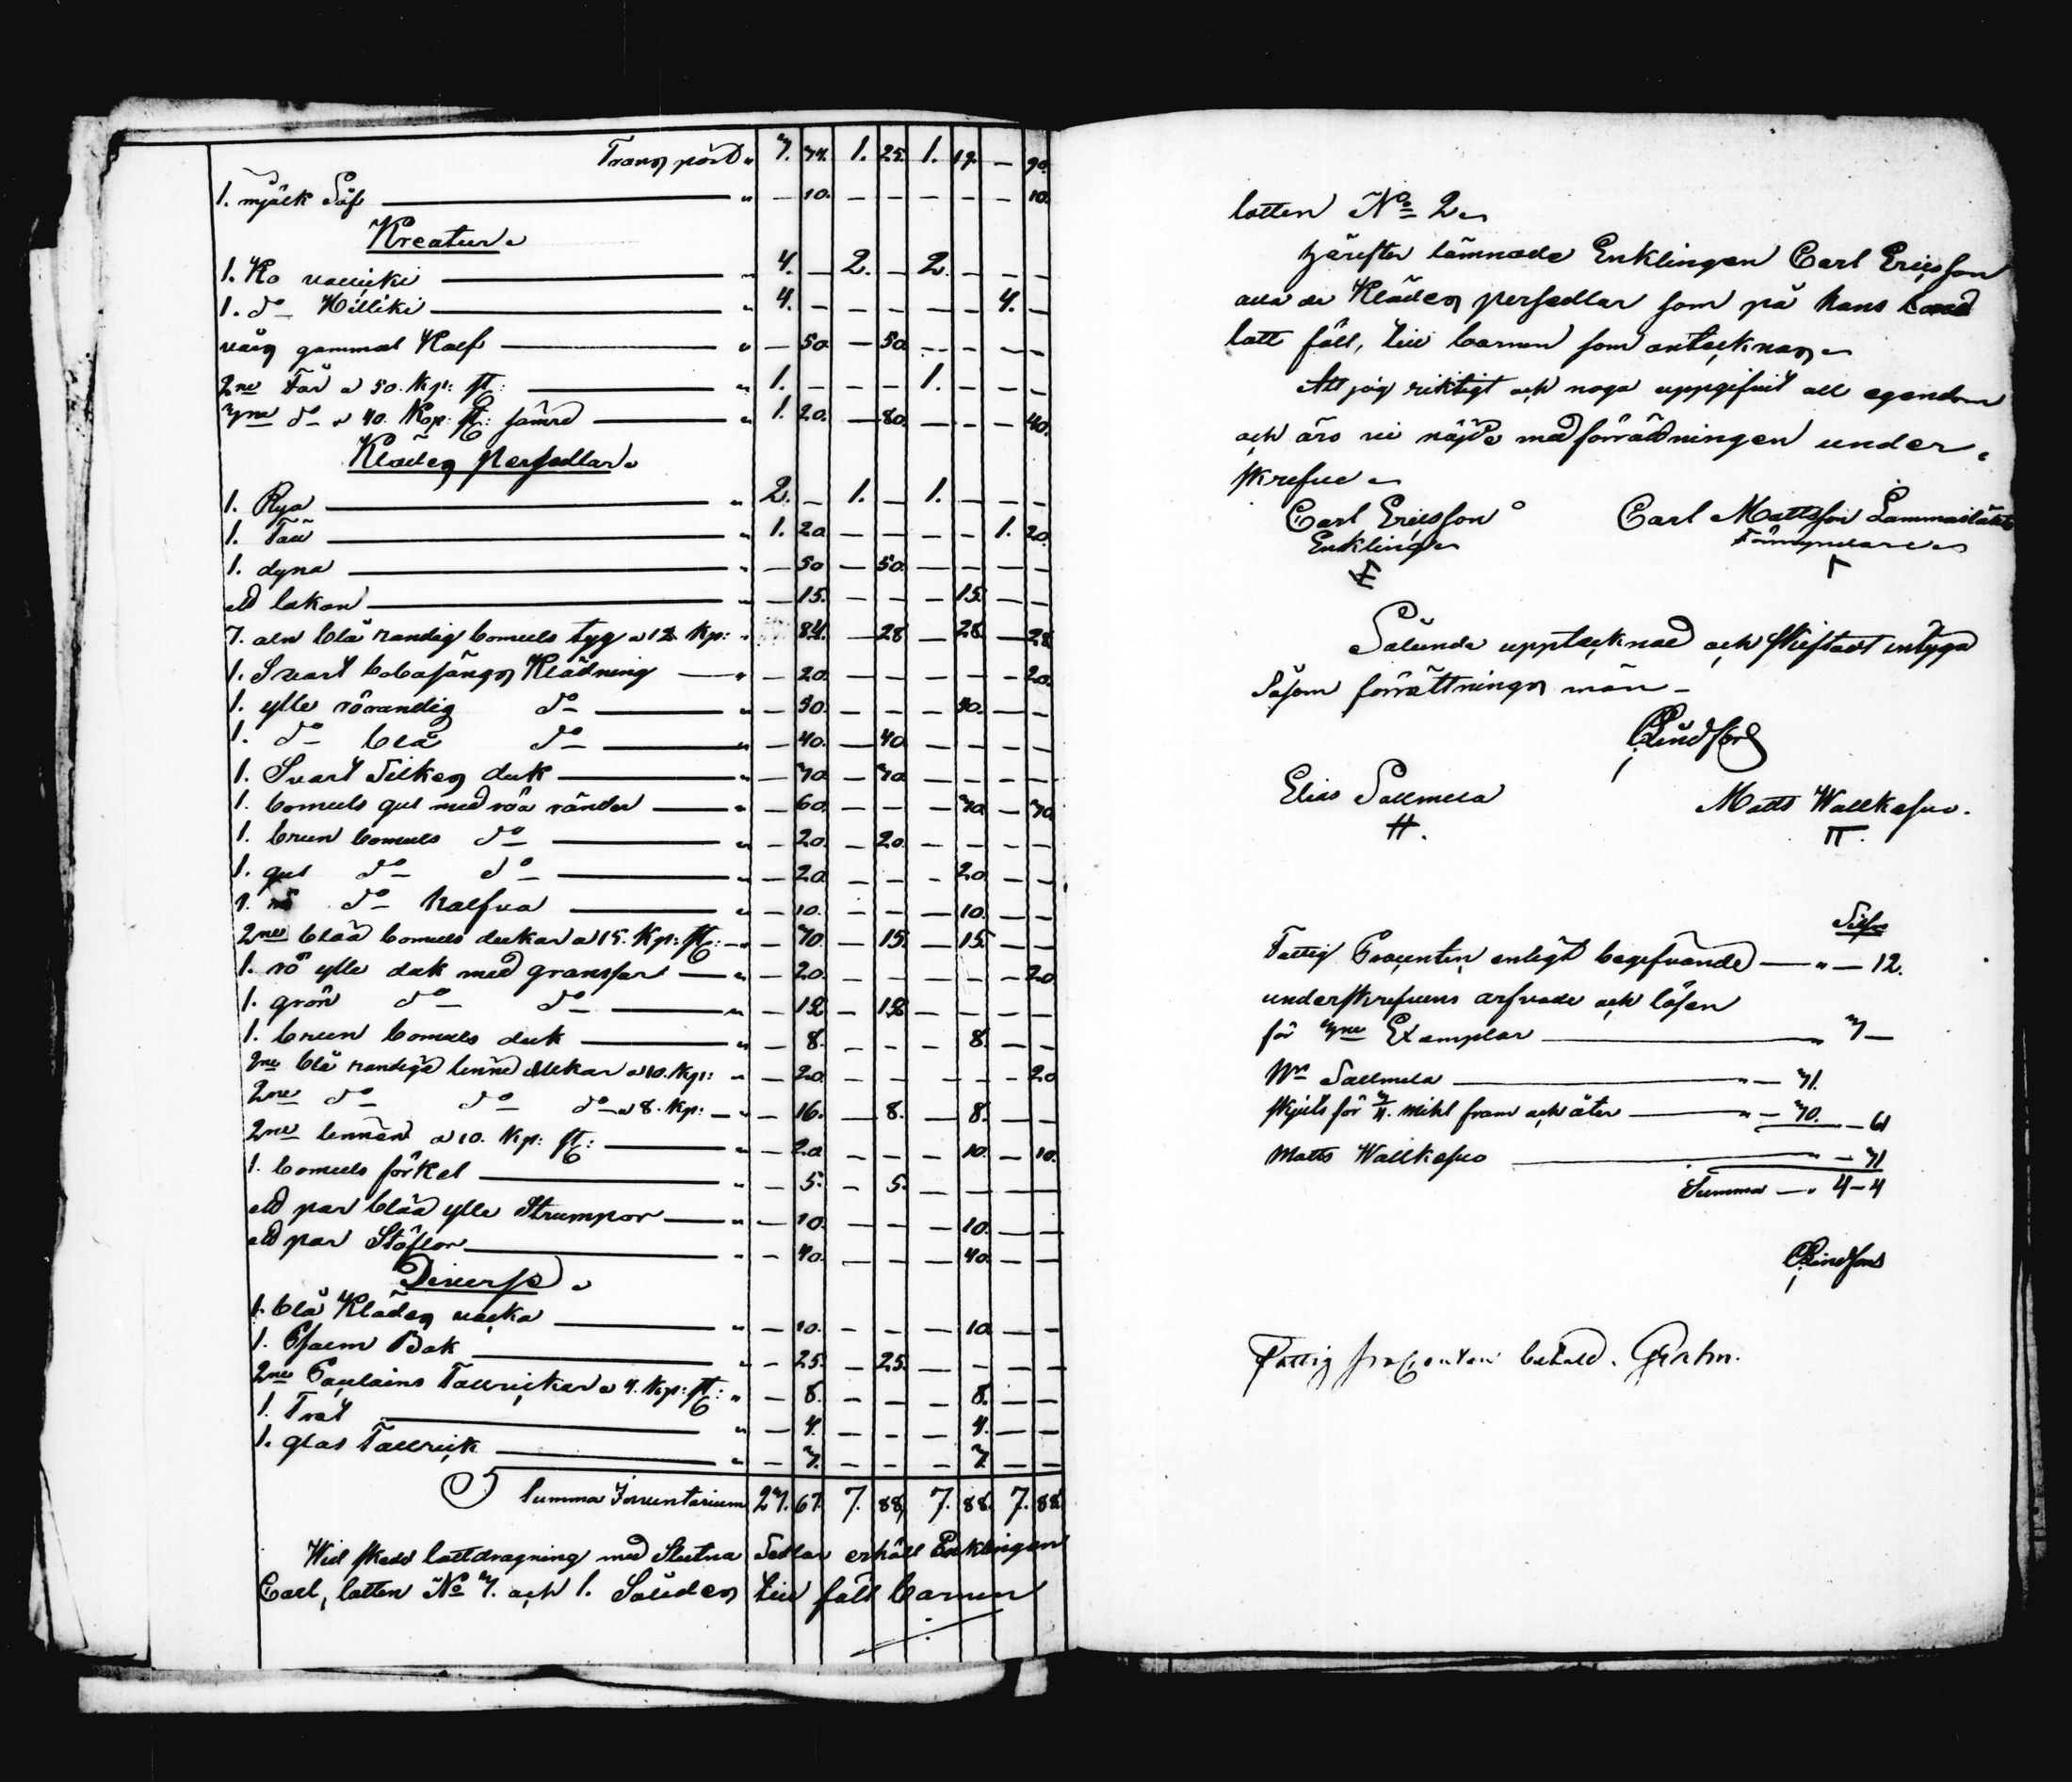 Transport " 3. 74. 1. 25. 1. 19. — 90.
1. mjölk Såf " — 10. — — — — — 10.
Kreatur
1. Ko " 4. — 2. — 2. — — —
1. do Killiki " 4. — — — — — 4. —
gammal Kalf " — 50. — 50. — — — —
2ne Får a 50. Kp: st: " 1. — — — 1. — — —
3ne do a 40. Kop: st: sämre " 1. 20. — 80. — — — 40.
Klädes Persedlar
1. Rya " 2. — 1. — 1. — — —
1. Täll " 1. 20. — — — — 1. 20.
1. dyna " — 50. — 50. — — — —
ett lakan " — 15. — — — 15. — —
7. aln blå randig bomuls tyg a 12 Kp: " 84. — 28 — 28. — 28
1. Svart Klädning " — 20. — — — — — 20.
1. ylle rörandig do " — 30. — — — 30. — —
1. do blå do " — 40. — 40. — — — —
1. Svart Silkes duk " — 70. — 70. — — — —
1. bomuls gul med röa ränder " — 60. — — — 30. — 30
1. brun bomuls do " — 20. — 20. — — — —
1. gul do do " — 20. — — — 20. — —
1. rö do halfva " — 10. — — — 10. — —
2ne blåa bomuls dukar a 15. Kp: st: " — 30. — 15. — 15. — —
1. rö ylle duk med fransar " — 20. — — — — — 20.
1. grön do do " — 12 — 12 — — — —
1. brun bomuls duk " — 8. — — — 8. — —
2ne blå randiga linne dukar a 10. Kp: " — 20. — — — — — 20
2ne do do do a 8. Kp: " — 16. — 8. — 8. — —
2ne linnen a 10. Kp: st: " — 20 — — — 10. — 10.
1. bomuls förkel " — 5. — 5. — — — —
ett par blåa ylle Strumpor " — 10. — — — 10. — —
ett par Stöflor " — 40. — — — 40. — —
Diverse
1. blå Klädes väska " — 10. — — — 10 — —
1. Psalm Bok " — 25. — 25. — — — —
2ne Tallrickar a 4. Kp: st: " — 8. — — — 8. — —
1. Trät " — 4. — — — 4. — —
1. glas Tallrick " — 3. — — — 3. — —
Summa Inventarium 23. 67. 7. 88. 7. 88. 7. 88.
Wid skedd lottdragning med Slutna Sedlar erhöll Enklingen
Carl, lotten No 3. och 1. Således till föll barnen
lotten No 2
Härefter lämnade Enklingen Carl Ericsson
alla de Klädes persedlar som på hans
lott föll, till barnen som antecknas
Att jag riktigt och noga uppgifvit all egendom
och äro vi nöjde med förrättningen under-
skrefve
Carl Ericsson Carl Mattsson
Enkling Förmyndare
Sålunda upptecknad och Skiftadt intyga
Såsom förrättnings män —
Lindfors
Elias Sallmela Matts Wallkesuo.
H. π.
Silfver
Fattig Procenten enligt begifvande — " — 12.
underskrefvens arfvode och lösen
för 3ne Exemplar " 3 —
Wn Sallmela " — 31.
skjuts för mihl fram och åter " — 30. — 61
Matts Wallkesuo " — 31
Summa — " 4 — 4
Lindfors
Fattig procenten betald.